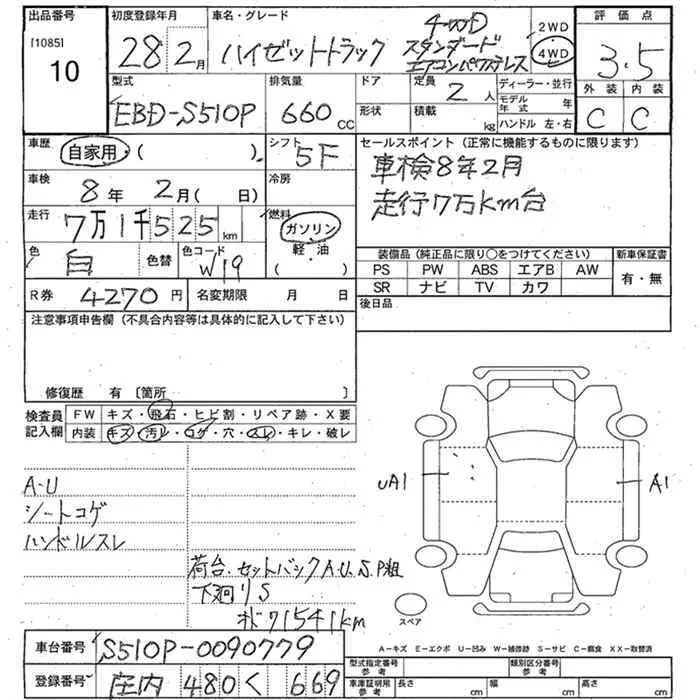 出品番号 初度登録年月 車名・グレード 評価点
[1085]
10
28 2月 ハイゼットトラック 4-WD スタンダード エアコンパワステレス 2WD 4WD 3.5
外装 内装
C C
型式 排気量 ドア 定員 ディーラー・並行
EBD-S510P 660 CC 形状 2人 モデル年式 年
積載 kg ハンドル 左・右
車歴 シフト セールスポイント (正常に機能するものに限ります)
自家用・( ) 5F 車検8年2月
車検 冷房 走行7万km台
8年 2月( 日)
走行 燃料
7万1千525km ガソリン
軽・油
( )
色 色替 色コード
白 W19
装備品 (純正品に限り○をつけてください) 新車保証書
PS PW ABS エアB AW 有・無
SR ナビ TV カワ
R券 4270円 名変期限 月 日 後日品
注意事項申告欄 (不具合内容等は具体的に記入して下さい)
修復歴 有 〔箇所 〕
検査員 FW キズ・飛石・ヒビ割・リペア跡・X要
記入欄 内装 キズ・汚レ・コゲ・穴・スレ・キレ・破レ
A-U
シートコゲ
ハンドルスレ
荷台、セットバックA.U.S.P粗
下廻りS
オド71541km
UA1 A1
スペア
A-キズ E-エクボ U-凹み W-補修跡 S-サビ C-腐食 XX-取替済
車台番号 S510P-0090779
登録番号 庄内 480 く 669
型式指定番号 参考 類別区分番号 参考
車庫証明用 参考 長さ cm 幅 cm 高さ cm